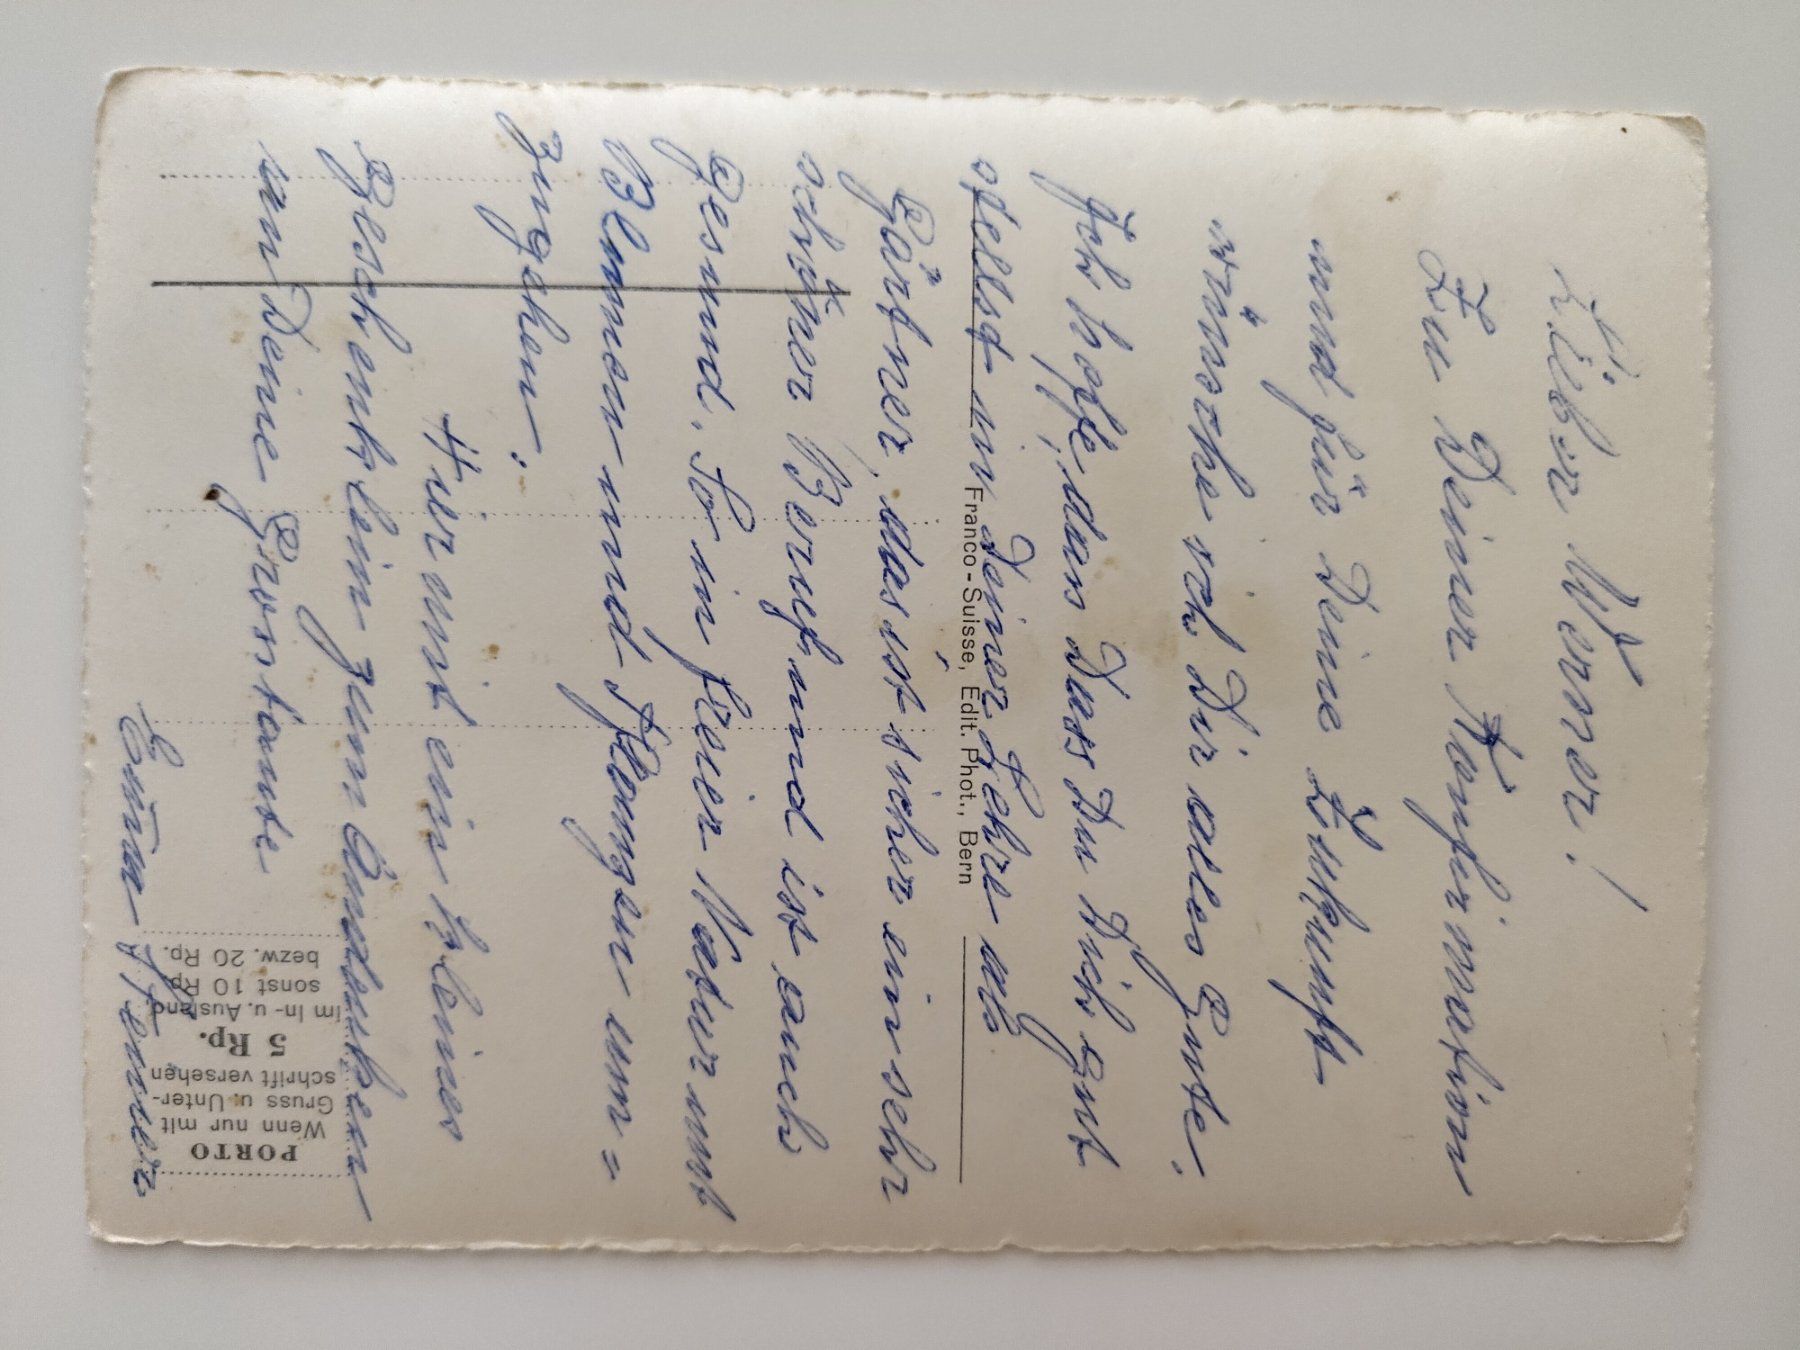 Lieber Werner!
Zu Deiner Konfirmation
und für Deine Zukunft
wünsche ich Dir alles Gute.
Ich hoffe, dass Dass Du Dich gut
stellst in Deiner Lehre als
Gärtner, das ist sicher ein sehr
schöner Beruf und ist auch
Gesund. So in freier Natur mit
Blumen und Pflanzen um=
zugehen.
Hier mit ein kleines
Geschenklein zum Andenken
an Deine Grosstante
Emma
Franco-Suisse, Edit. Phot., Bern
PORTO
Wenn nur mit
Gruss u. Unter-
schrift versehen
5 Rp.
im In- u. Ausland,
sonst 10 Rp.
bezw. 20 Rp.